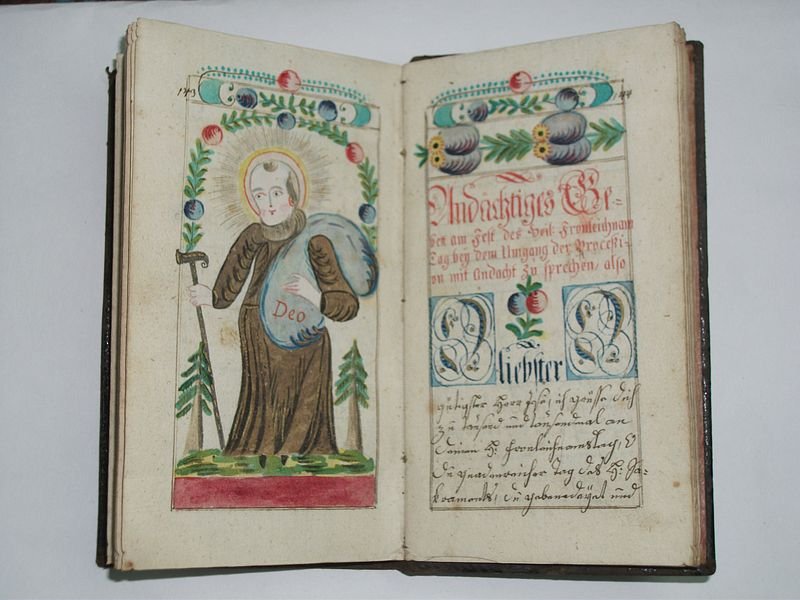 143
Deo
44
Andächtiges Ge=
bett am Fest des heil: Fronleichnam
Tag bey dem Umgang der Processi-
on mit Andacht zu sprechen, also
O liebster O
gütigster Herr Jesu, ich grüsse dich
zu tausend und tausendmal an
deinem H: Fronleichnamstag, O
du gnadenreicher Tag des H: Sa-
kraments, du gebenedeyet und